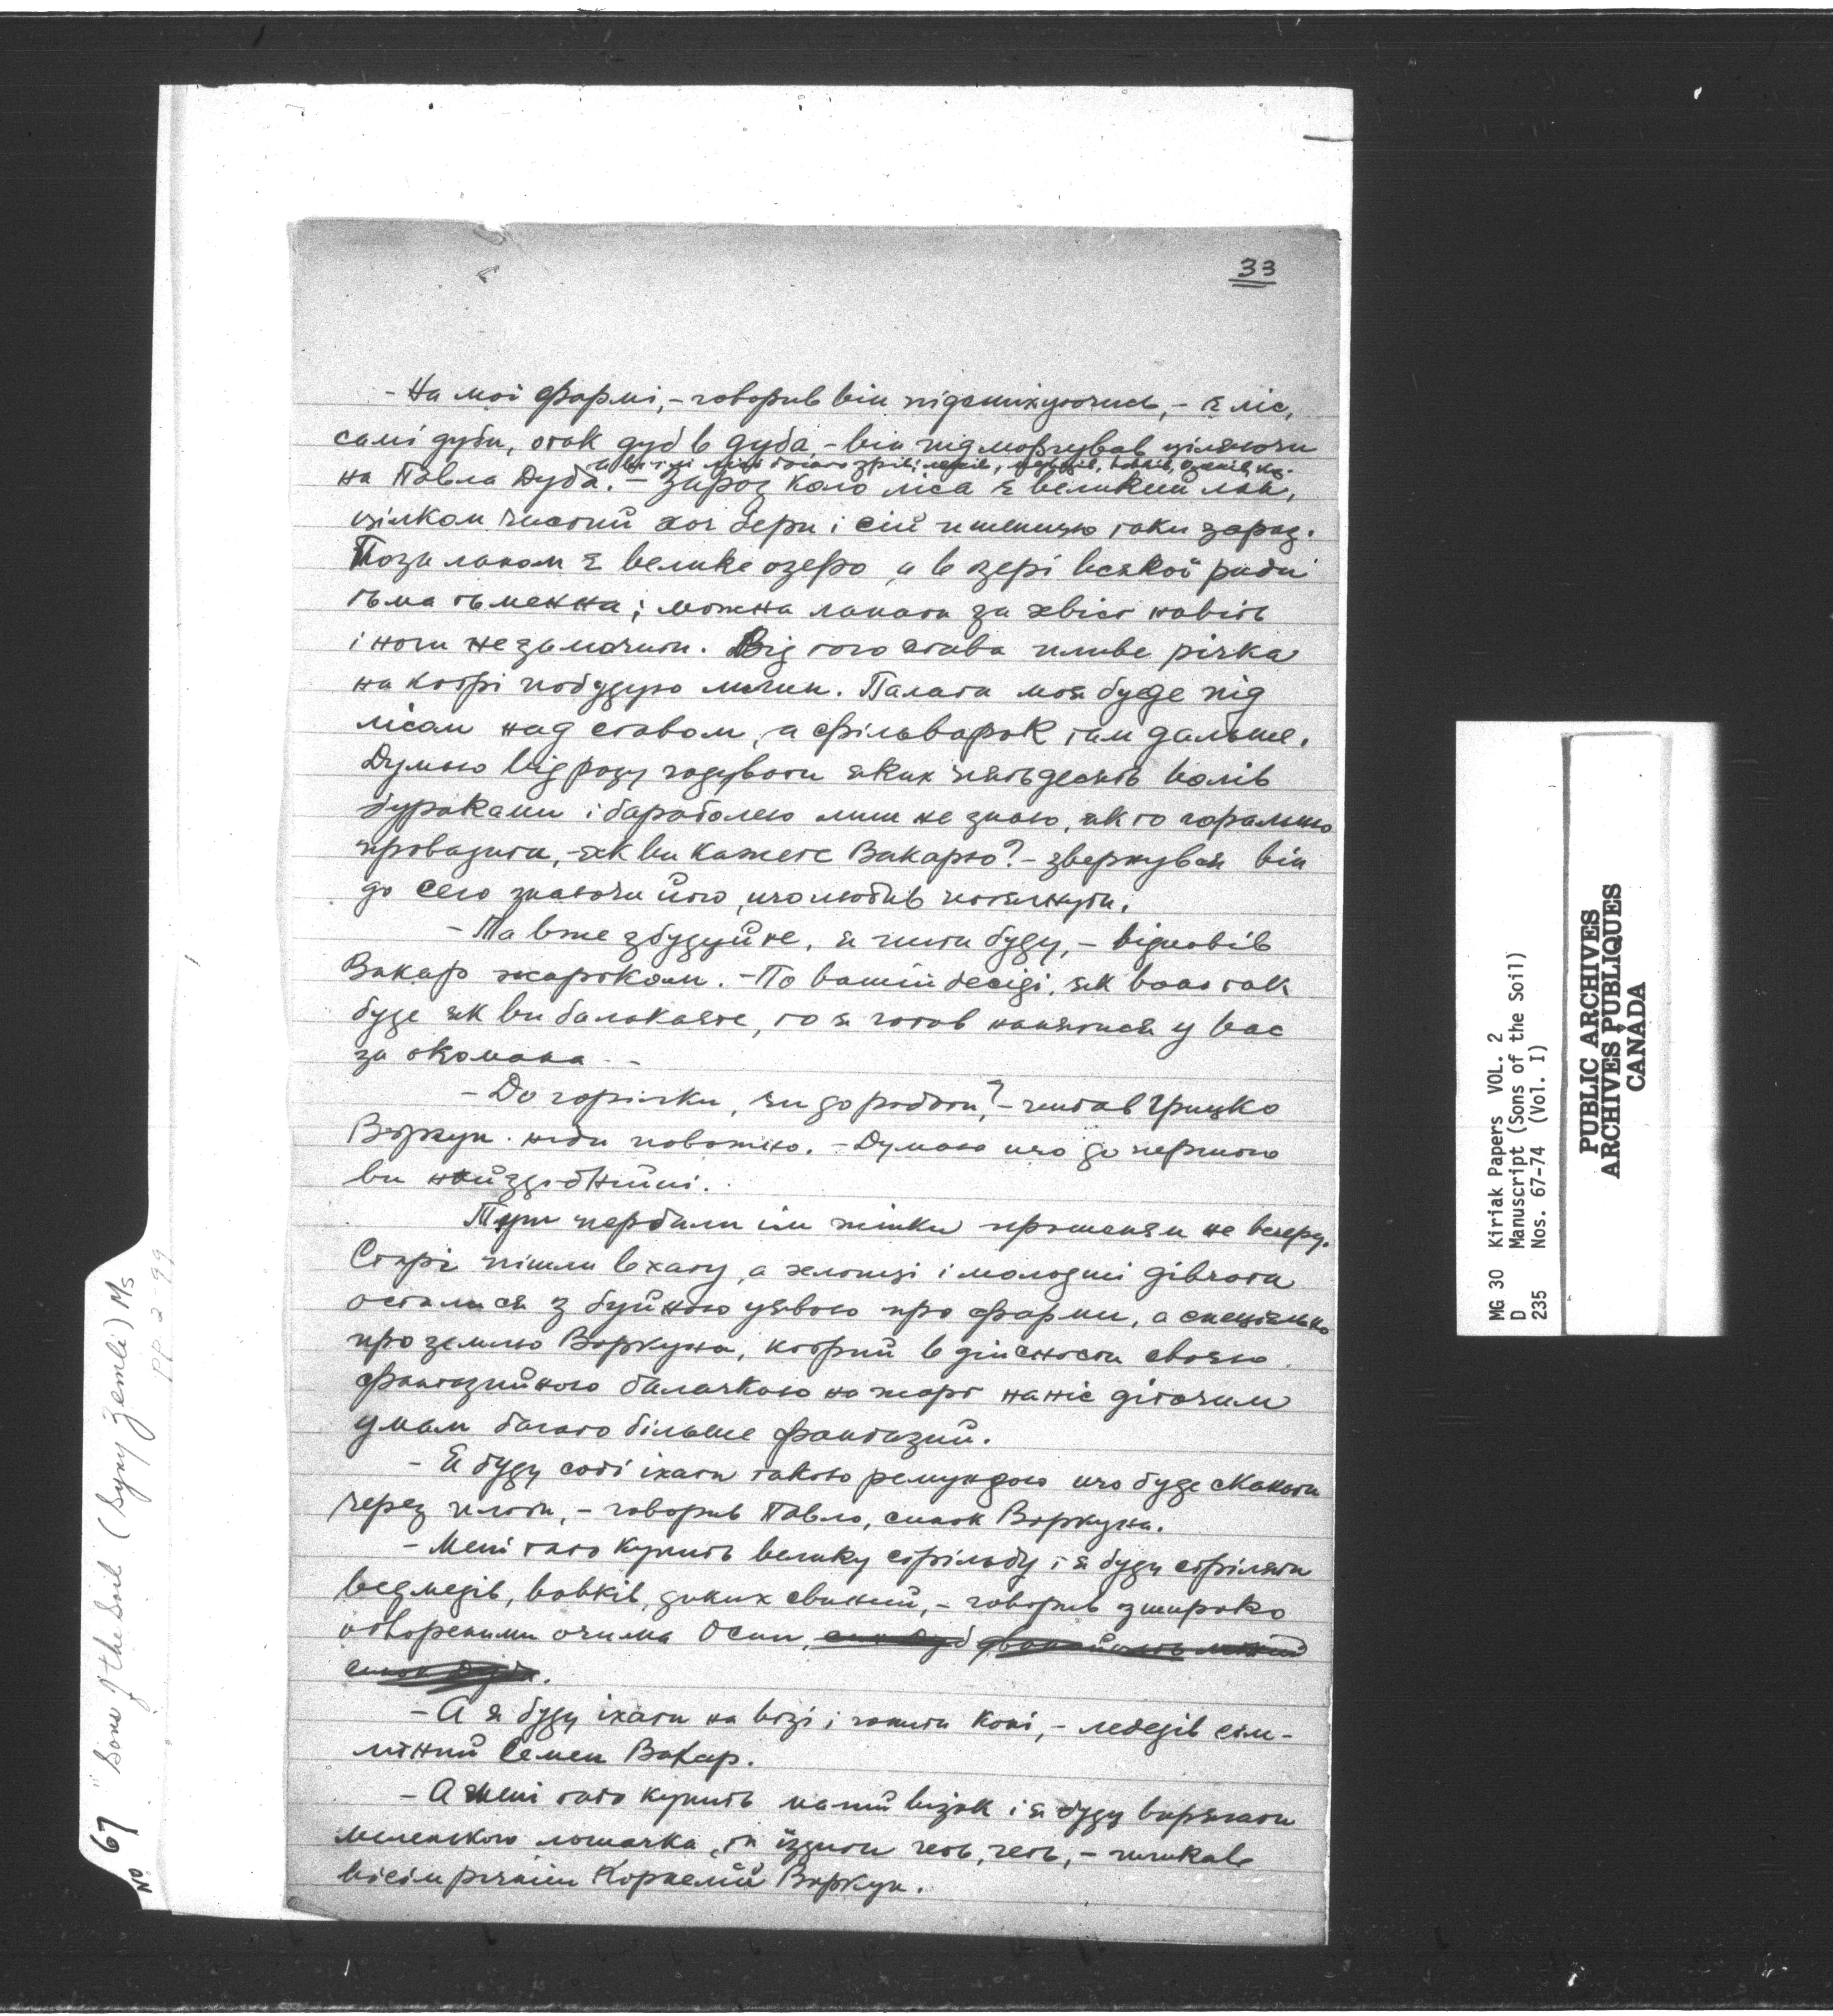 33
- На мої фармі, - говорив він підсміхуючись, - є ліс,
самі дуби, отак дуб в дуба, - він підморгував ціляючи
а в тім лісі багато звірів:
на Павла Дуба. - Зараз коло ліса є великий лан,
цілком чистий хоч бери і сій пшеницю таки зараз.
Поза ланом є велике озеро а в озері всякої риби
тьма тьменна; можна лапати за хвіст навіть
і ноги не замочити. Від того става пливе річка
на котрі побудую млин. Палата моя буде під
лісом над ставом, а фільварок там дальше.
Думаю відразу годувати яких пятьдесять волів
бураками і бараболею лиш не знаю, як то горальню
провадити, - як ви кажете Вакарю? - звернувся він
до сего знаючи його, що любив потягнути.
- Та вже збудуйте, я пити буду, - відповів
Вакар жартком. - По вашій бесіді, як воно так
буде як ви балакаєте, то я готов нанятися у вас
за окомана -
- До горівки, чи до роботи? - питав Грицко
Воркун ніби поважно. - Думаю що до першого
ви найздібнійші.
Тут перебили їм жінки прошенєм на вечеру.
Старі пішли в хату, а хлопці і молодші дівчата
осталися з буйною уявою про фарми, а спеціяльно
про землю Воркуна, котрий в дійсности своєю
фантазийною балачкою на жарт наніс діточим
умам багато більше фантазий.
- Я буду собі їхати такою ремундою що буде скакати
через плоти, - говорив Павло, синок Воркуна.
- Мені тато купить велику стрільбу і я буду стріляти
ведмедів, вовків, диких свиний, - говорив з широко
отвореними очима Осип,
синок Дуба.
- А я буду їхати на возі і гонити коні, - лебедів сім-
літний Семен Вакар.
- А мені тато купить малий візок і я буду впрягати
маленького лошачка, та їздити геть, геть, - цвикав
вісімрічний Корнелій Воркун.
No 67 "Sons of the Soil (Syny Zemli) Ms
PP. 2-99
MG 30 Kiriak Papers VOL. 2
D Manuscript (Sons of the Soil)
235 Nos. 67-74 (Vol. I)
PUBLIC ARCHIVES
ARCHIVES PUBLIQUES
CANADA